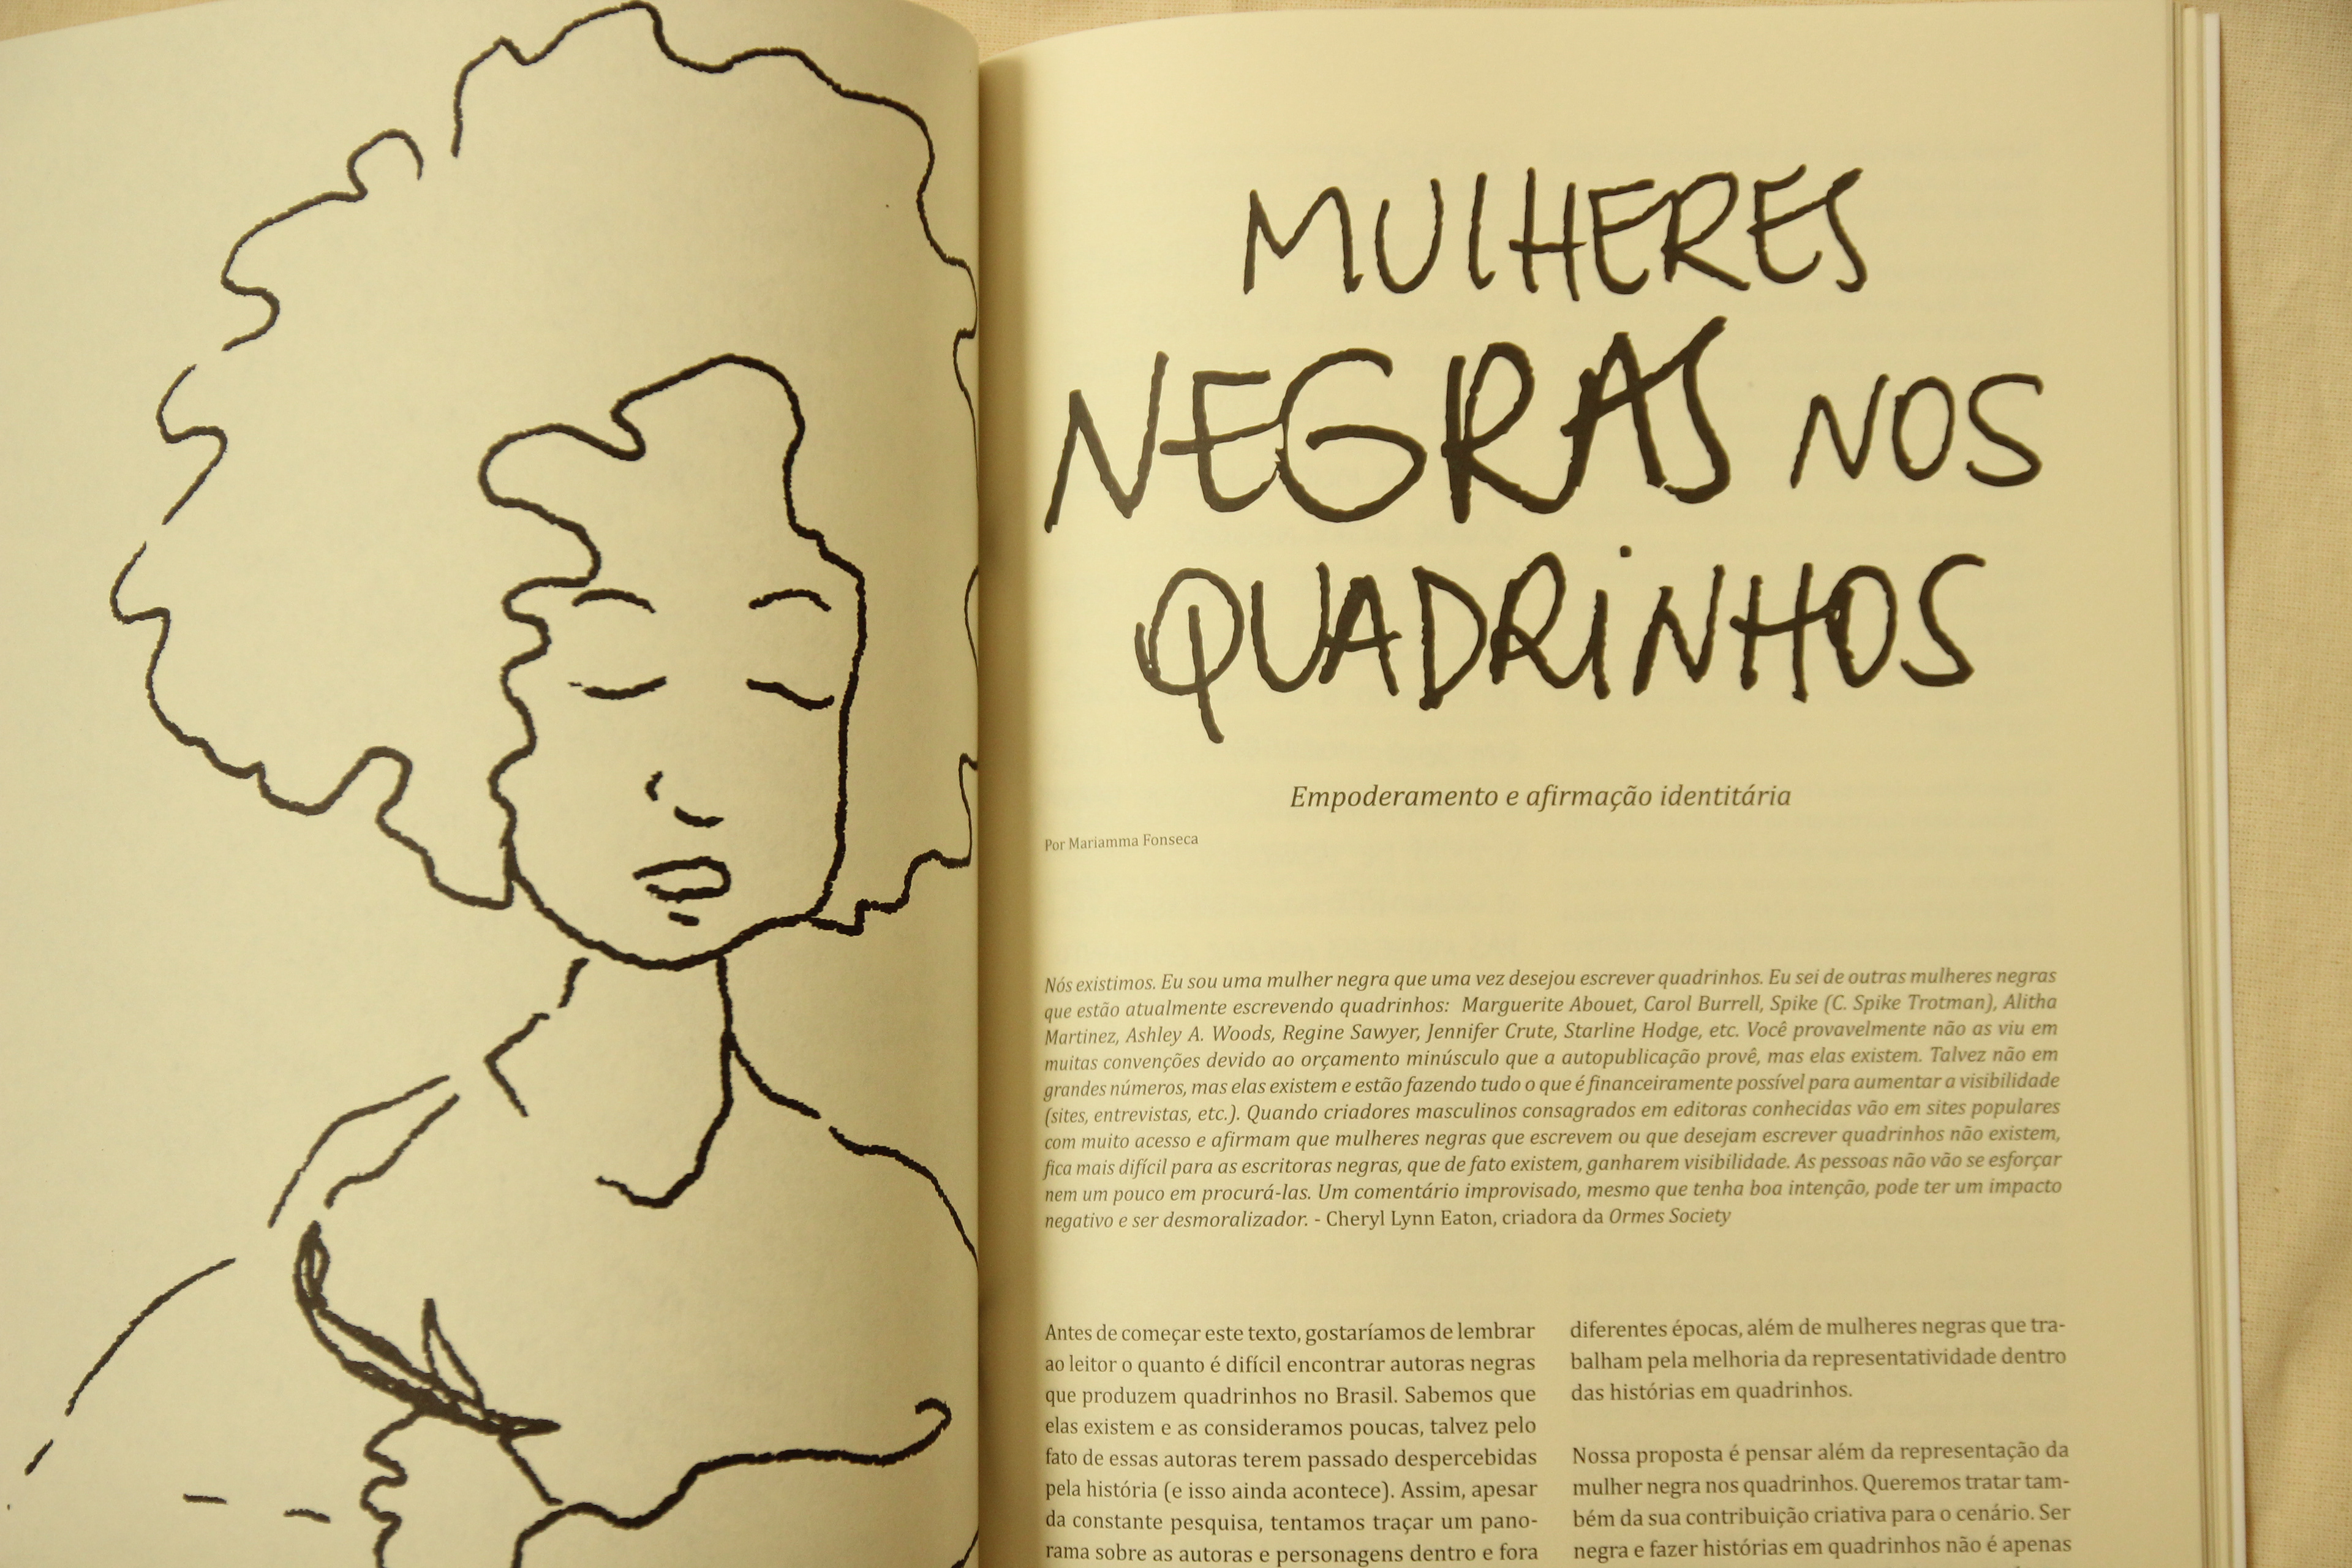 MULHERES
NEGRAS NOS
QUADRINHOS
Empoderamento e afirmação identitária
Por Mariamma Fonseca
Nós existimos. Eu sou uma mulher negra que uma vez desejou escrever quadrinhos. Eu sei de outras mulheres negras
que estão atualmente escrevendo quadrinhos: Marguerite Abouet, Carol Burrell, Spike (C. Spike Trotman), Alitha
Martinez, Ashley A. Woods, Regine Sawyer, Jennifer Crute, Starline Hodge, etc. Você provavelmente não as viu em
muitas convenções devido ao orçamento minúsculo que a autopublicação provê, mas elas existem. Talvez não em
grandes números, mas elas existem e estão fazendo tudo o que é financeiramente possível para aumentar a visibilidade
(sites, entrevistas, etc.). Quando criadores masculinos consagrados em editoras conhecidas vão em sites populares
com muito acesso e afirmam que mulheres negras que escrevem ou que desejam escrever quadrinhos não existem,
fica mais difícil para as escritoras negras, que de fato existem, ganharem visibilidade. As pessoas não vão se esforçar
nem um pouco em procurá-las. Um comentário improvisado, mesmo que tenha boa intenção, pode ter um impacto
negativo e ser desmoralizador. - Cheryl Lynn Eaton, criadora da Ormes Society
Antes de começar este texto, gostaríamos de lembrar
ao leitor o quanto é difícil encontrar autoras negras
que produzem quadrinhos no Brasil. Sabemos que
elas existem e as consideramos poucas, talvez pelo
fato de essas autoras terem passado despercebidas
pela história (e isso ainda acontece). Assim, apesar
da constante pesquisa, tentamos traçar um pano-
rama sobre as autoras e personagens dentro e fora
diferentes épocas, além de mulheres negras que tra-
balham pela melhoria da representatividade dentro
das histórias em quadrinhos.
Nossa proposta é pensar além da representação da
mulher negra nos quadrinhos. Queremos tratar tam-
bém da sua contribuição criativa para o cenário. Ser
negra e fazer histórias em quadrinhos não é apenas